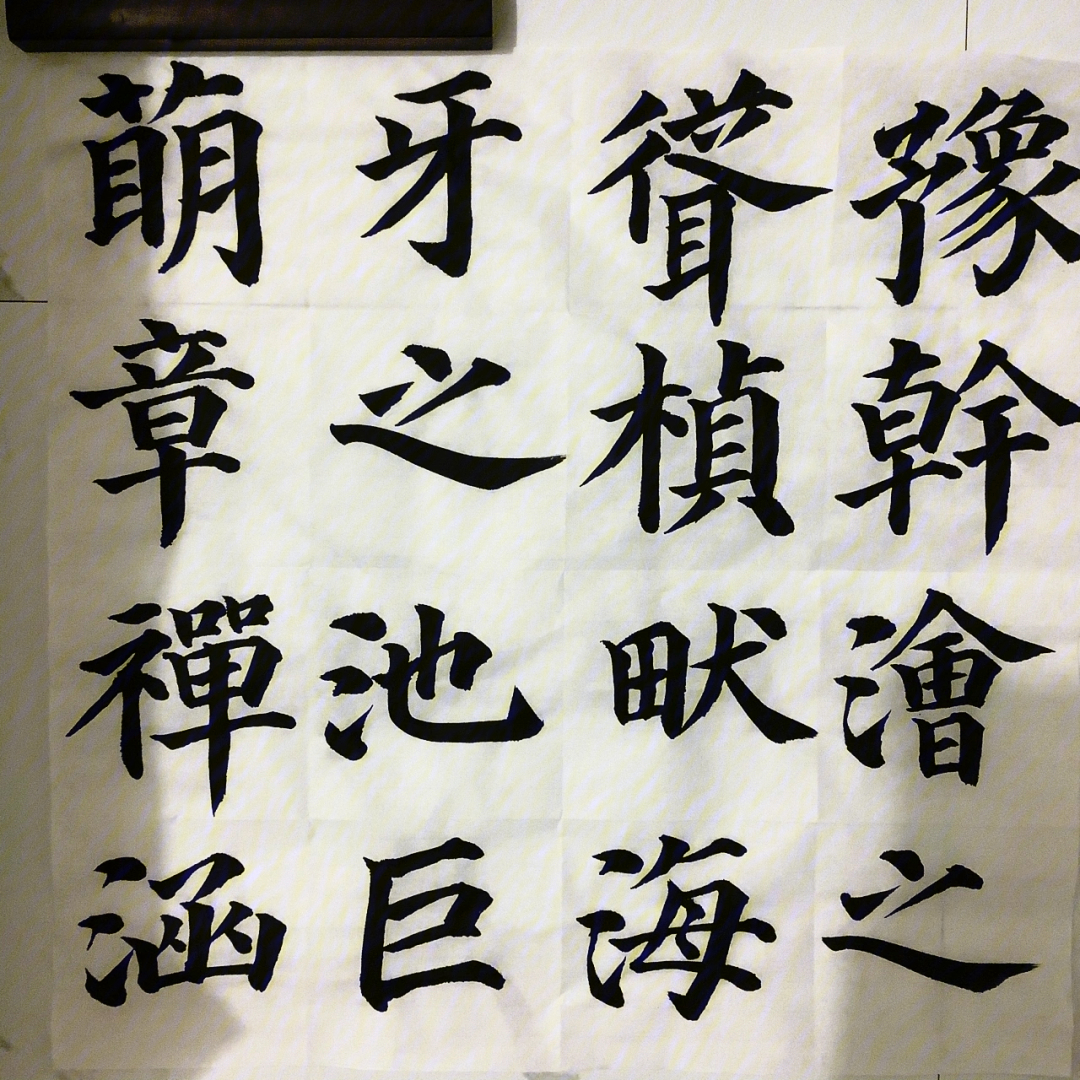 萌牙聳豫
章之楨幹
禪池畎澮
涵巨海之